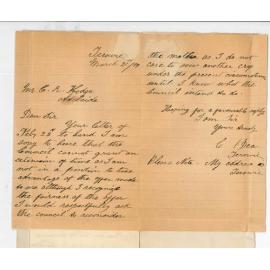 Terowie
March 21/99
Mr C. R. Hodge
Adelaide
Dear Sir
Your letter of
Feby 23rd to hand I am
sorry to hear that the
Council cannot grant an
extension of time as I am
not in a position to take
advantage of the offer made
to me although I recognize
the fairness of the offer
I would respectfully ask
the council to reconsider
the matter as I do not
care to sow another crop
under the present circumstances
until I know what the
Council intend to do
Hoping for a favourable reply
I am Sir
Yours truly
C
Terowie
Please Note - My address is
Terowie